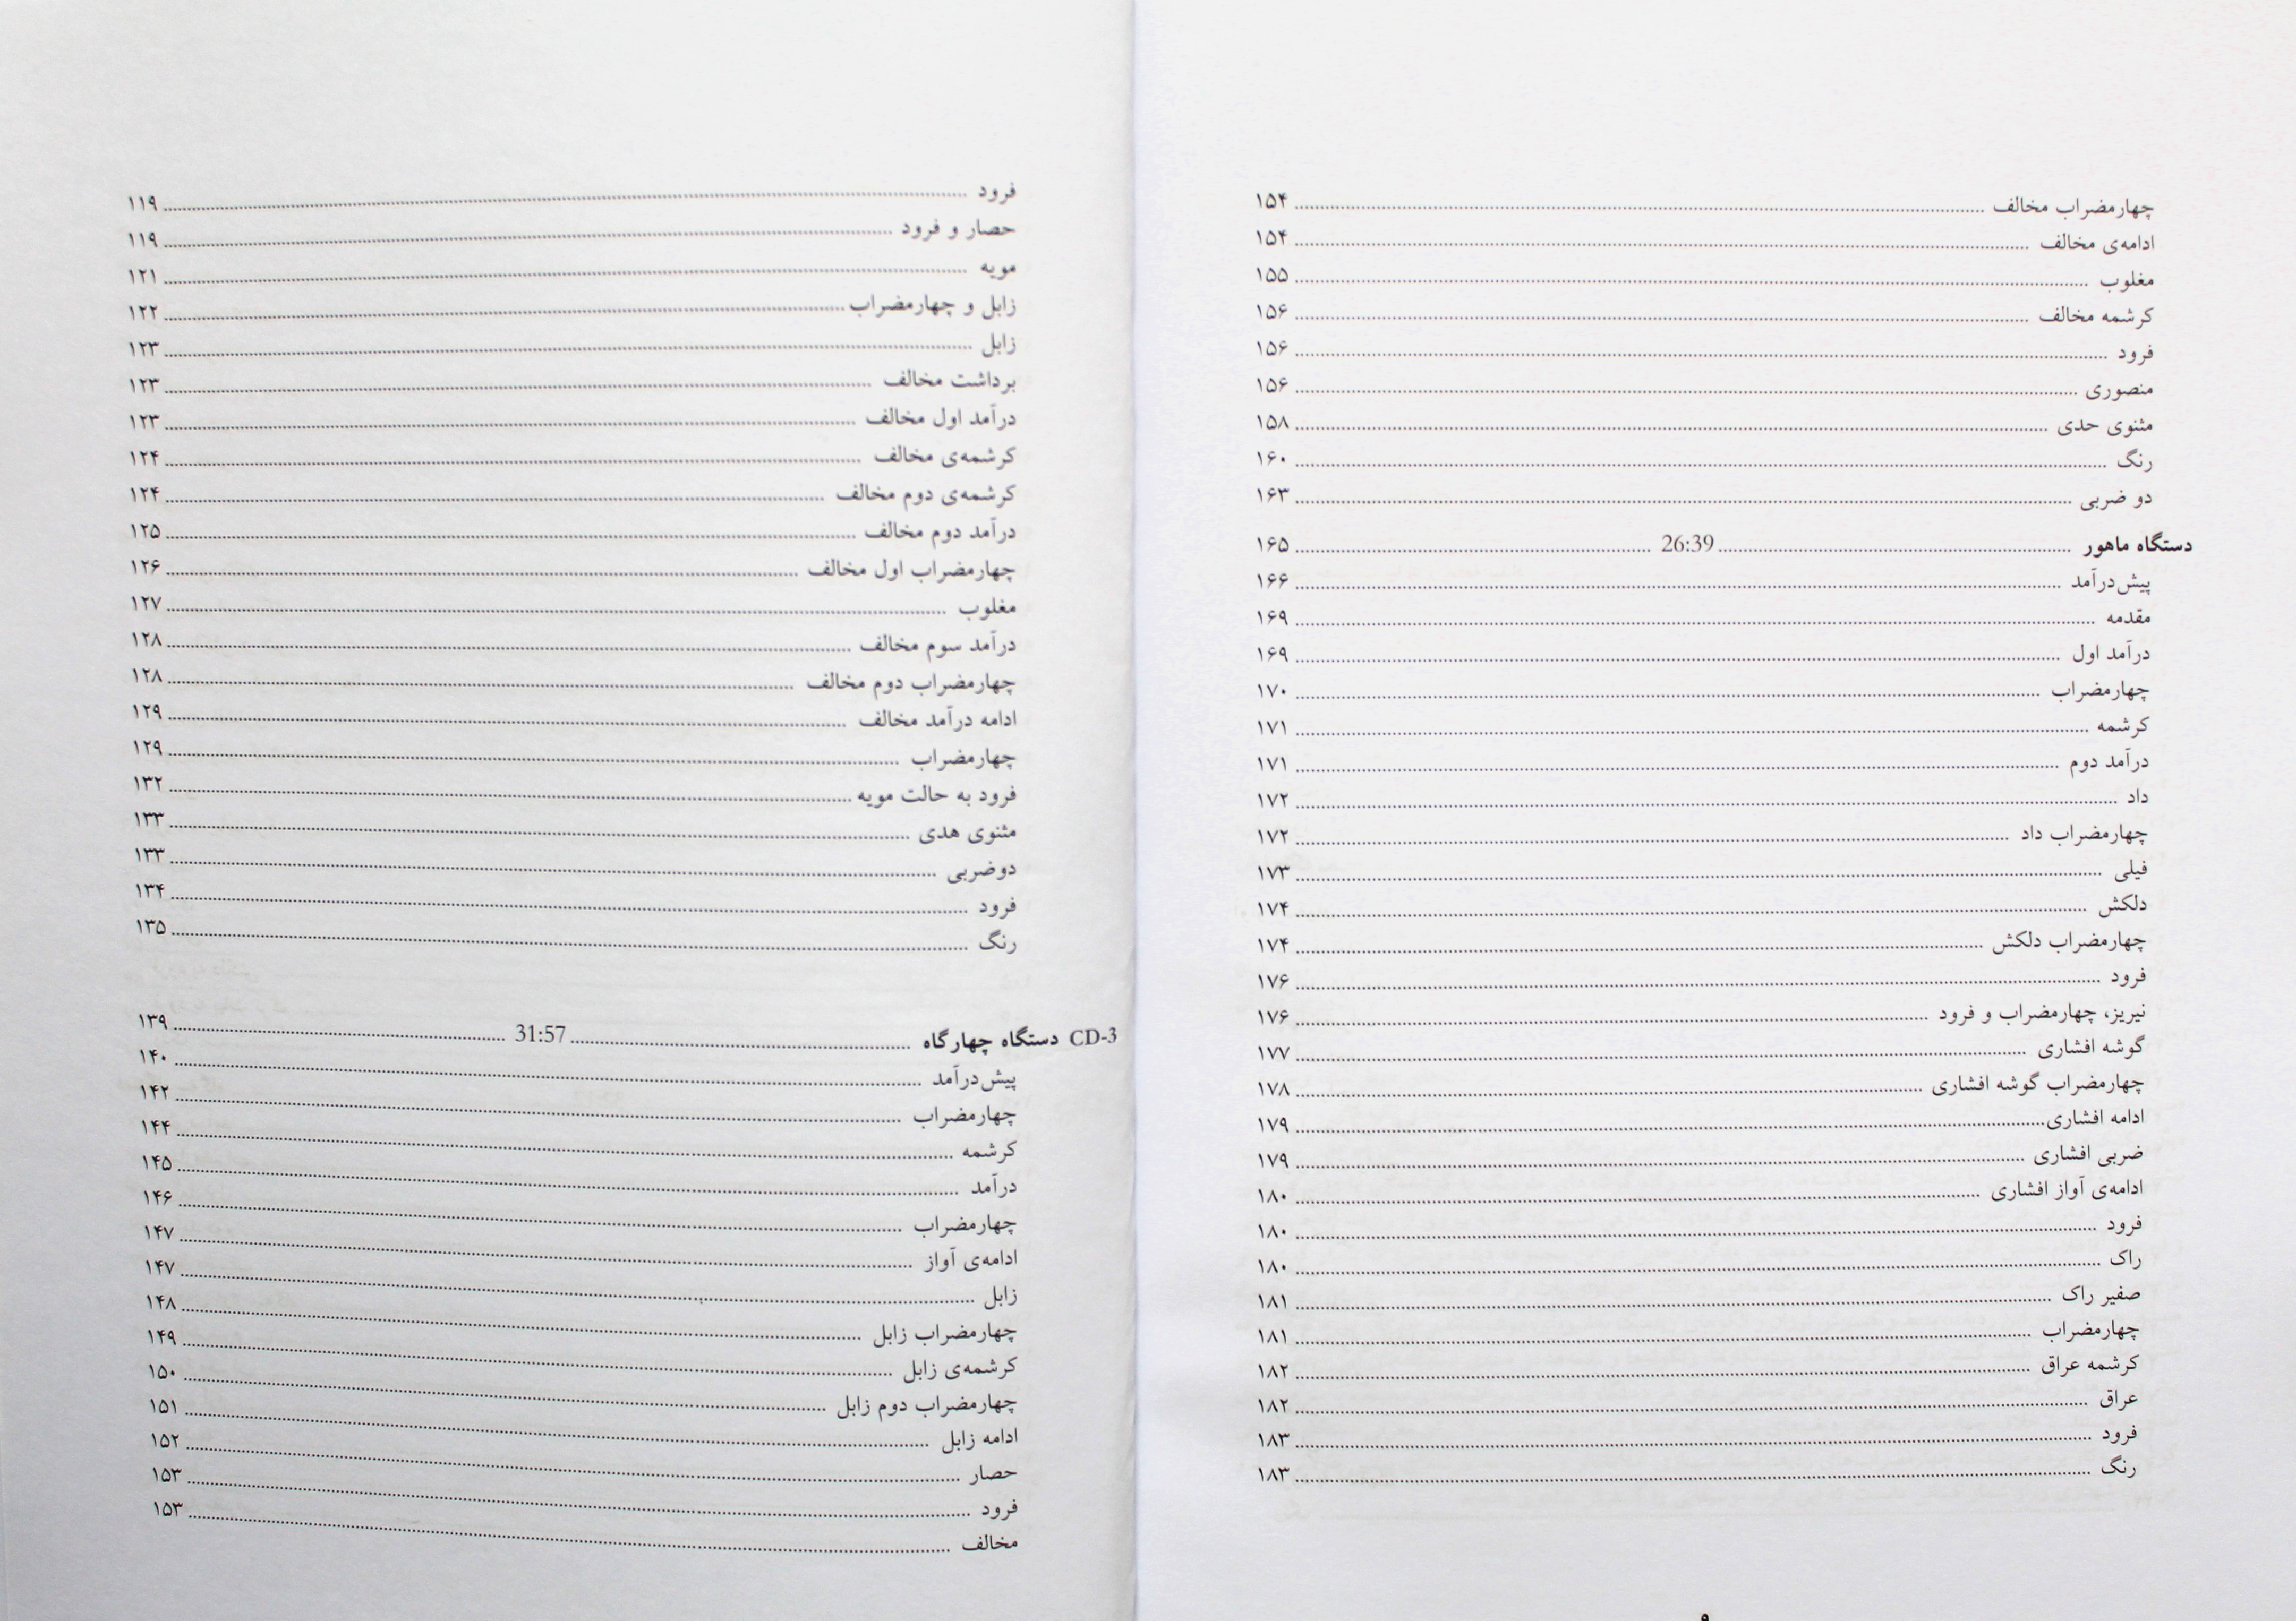 فرود ۱۱۹
حصار و فرود ۱۱۹
مویه ۱۲۱
زابل و چهارمضراب ۱۲۲
زابل ۱۲۳
برداشت مخالف ۱۲۳
درآمد اول مخالف ۱۲۳
کرشمه‌ی مخالف ۱۲۴
کرشمه‌ی دوم مخالف ۱۲۴
درآمد دوم مخالف ۱۲۵
چهارمضراب اول مخالف ۱۲۶
مغلوب ۱۲۷
درآمد سوم مخالف ۱۲۸
چهارمضراب دوم مخالف ۱۲۸
ادامه درآمد مخالف ۱۲۹
چهارمضراب ۱۲۹
فرود به حالت مویه ۱۳۲
مثنوی هدی ۱۳۳
دوضربی ۱۳۳
فرود ۱۳۴
رنگ ۱۳۵
CD-3 دستگاه چهارگاه 31:57 ۱۳۹
پیش‌درآمد ۱۴۰
چهارمضراب ۱۴۲
کرشمه ۱۴۴
درآمد ۱۴۵
چهارمضراب ۱۴۶
ادامه‌ی آواز ۱۴۷
زابل ۱۴۷
چهارمضراب زابل ۱۴۸
کرشمه‌ی زابل ۱۴۹
چهارمضراب دوم زابل ۱۵۰
ادامه زابل ۱۵۱
حصار ۱۵۲
فرود ۱۵۳
مخالف ۱۵۳
چهارمضراب مخالف ۱۵۴
ادامه‌ی مخالف ۱۵۴
مغلوب ۱۵۵
کرشمه مخالف ۱۵۶
فرود ۱۵۶
منصوری ۱۵۶
مثنوی حدی ۱۵۸
رنگ ۱۶۰
دو ضربی ۱۶۳
دستگاه ماهور 26:39 ۱۶۵
پیش‌درآمد ۱۶۶
مقدمه ۱۶۹
درآمد اول ۱۶۹
چهارمضراب ۱۷۰
کرشمه ۱۷۱
درآمد دوم ۱۷۱
داد ۱۷۲
چهارمضراب داد ۱۷۲
فیلی ۱۷۳
دلکش ۱۷۴
چهارمضراب دلکش ۱۷۴
فرود ۱۷۶
نیریز، چهارمضراب و فرود ۱۷۶
گوشه افشاری ۱۷۷
چهارمضراب گوشه افشاری ۱۷۸
ادامه افشاری ۱۷۹
ضربی افشاری ۱۷۹
ادامه‌ی آواز افشاری ۱۸۰
فرود ۱۸۰
راک ۱۸۰
صفیر راک ۱۸۱
چهارمضراب ۱۸۱
کرشمه عراق ۱۸۲
عراق ۱۸۲
فرود ۱۸۳
رنگ ۱۸۳
۹